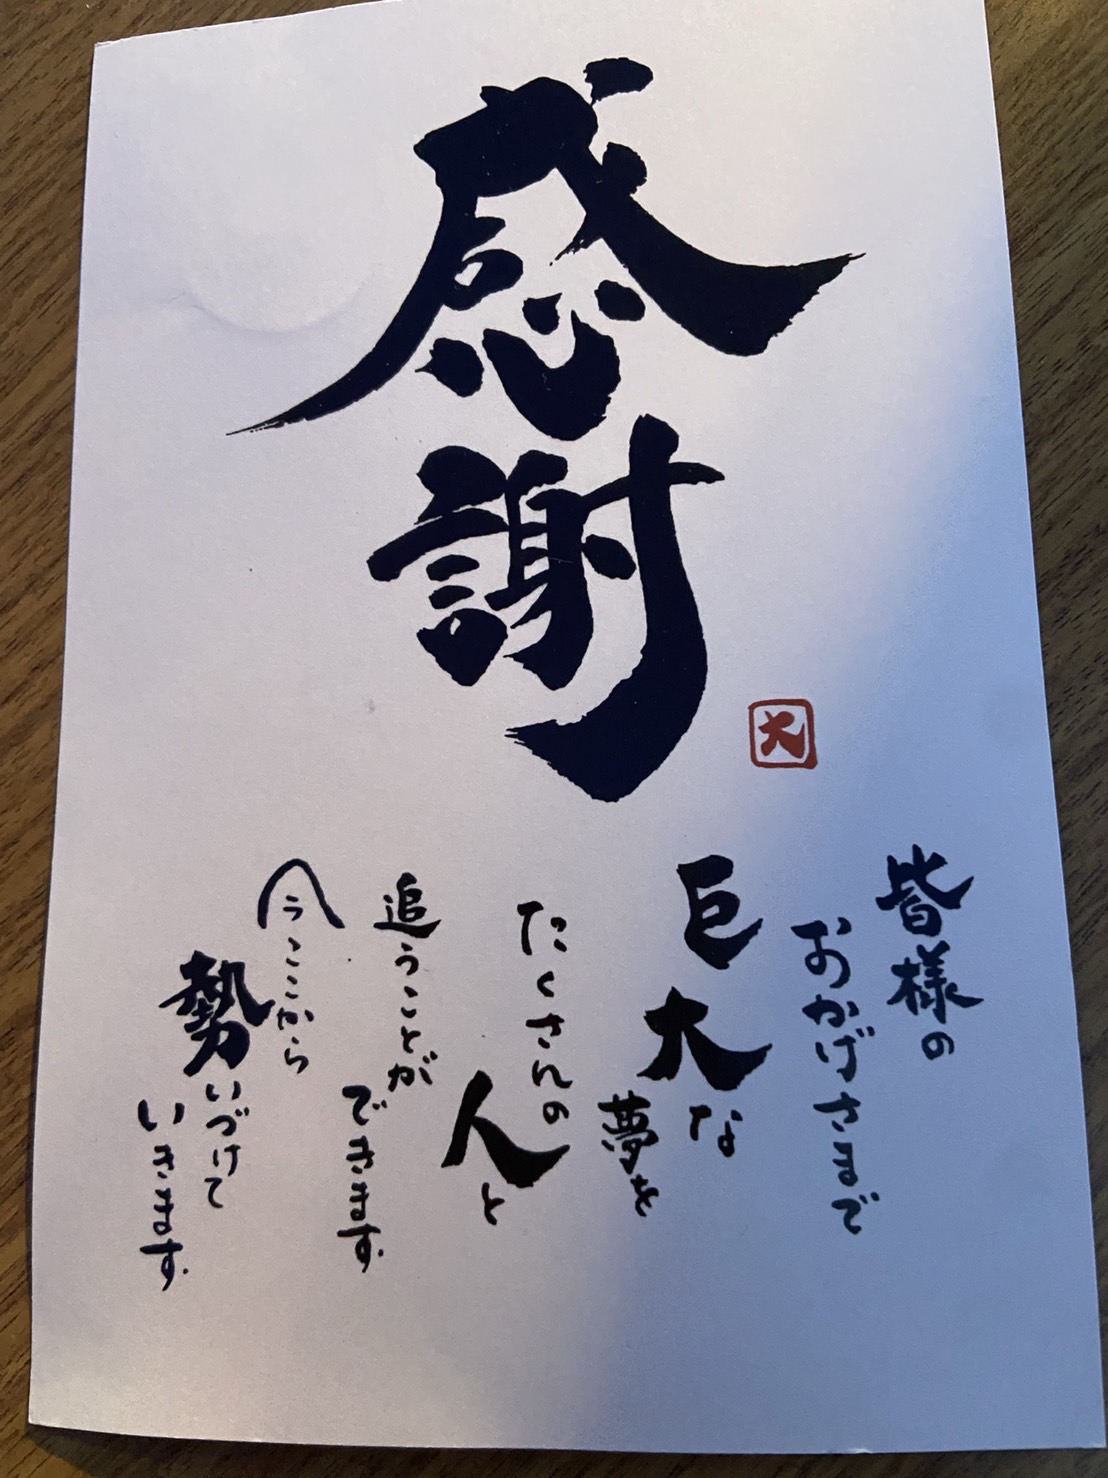 感謝
大
皆様の
おかげさまで
巨大な
夢を
たくさんの
人と
追うことが
できます
今ここから
勢いづけて
いきます